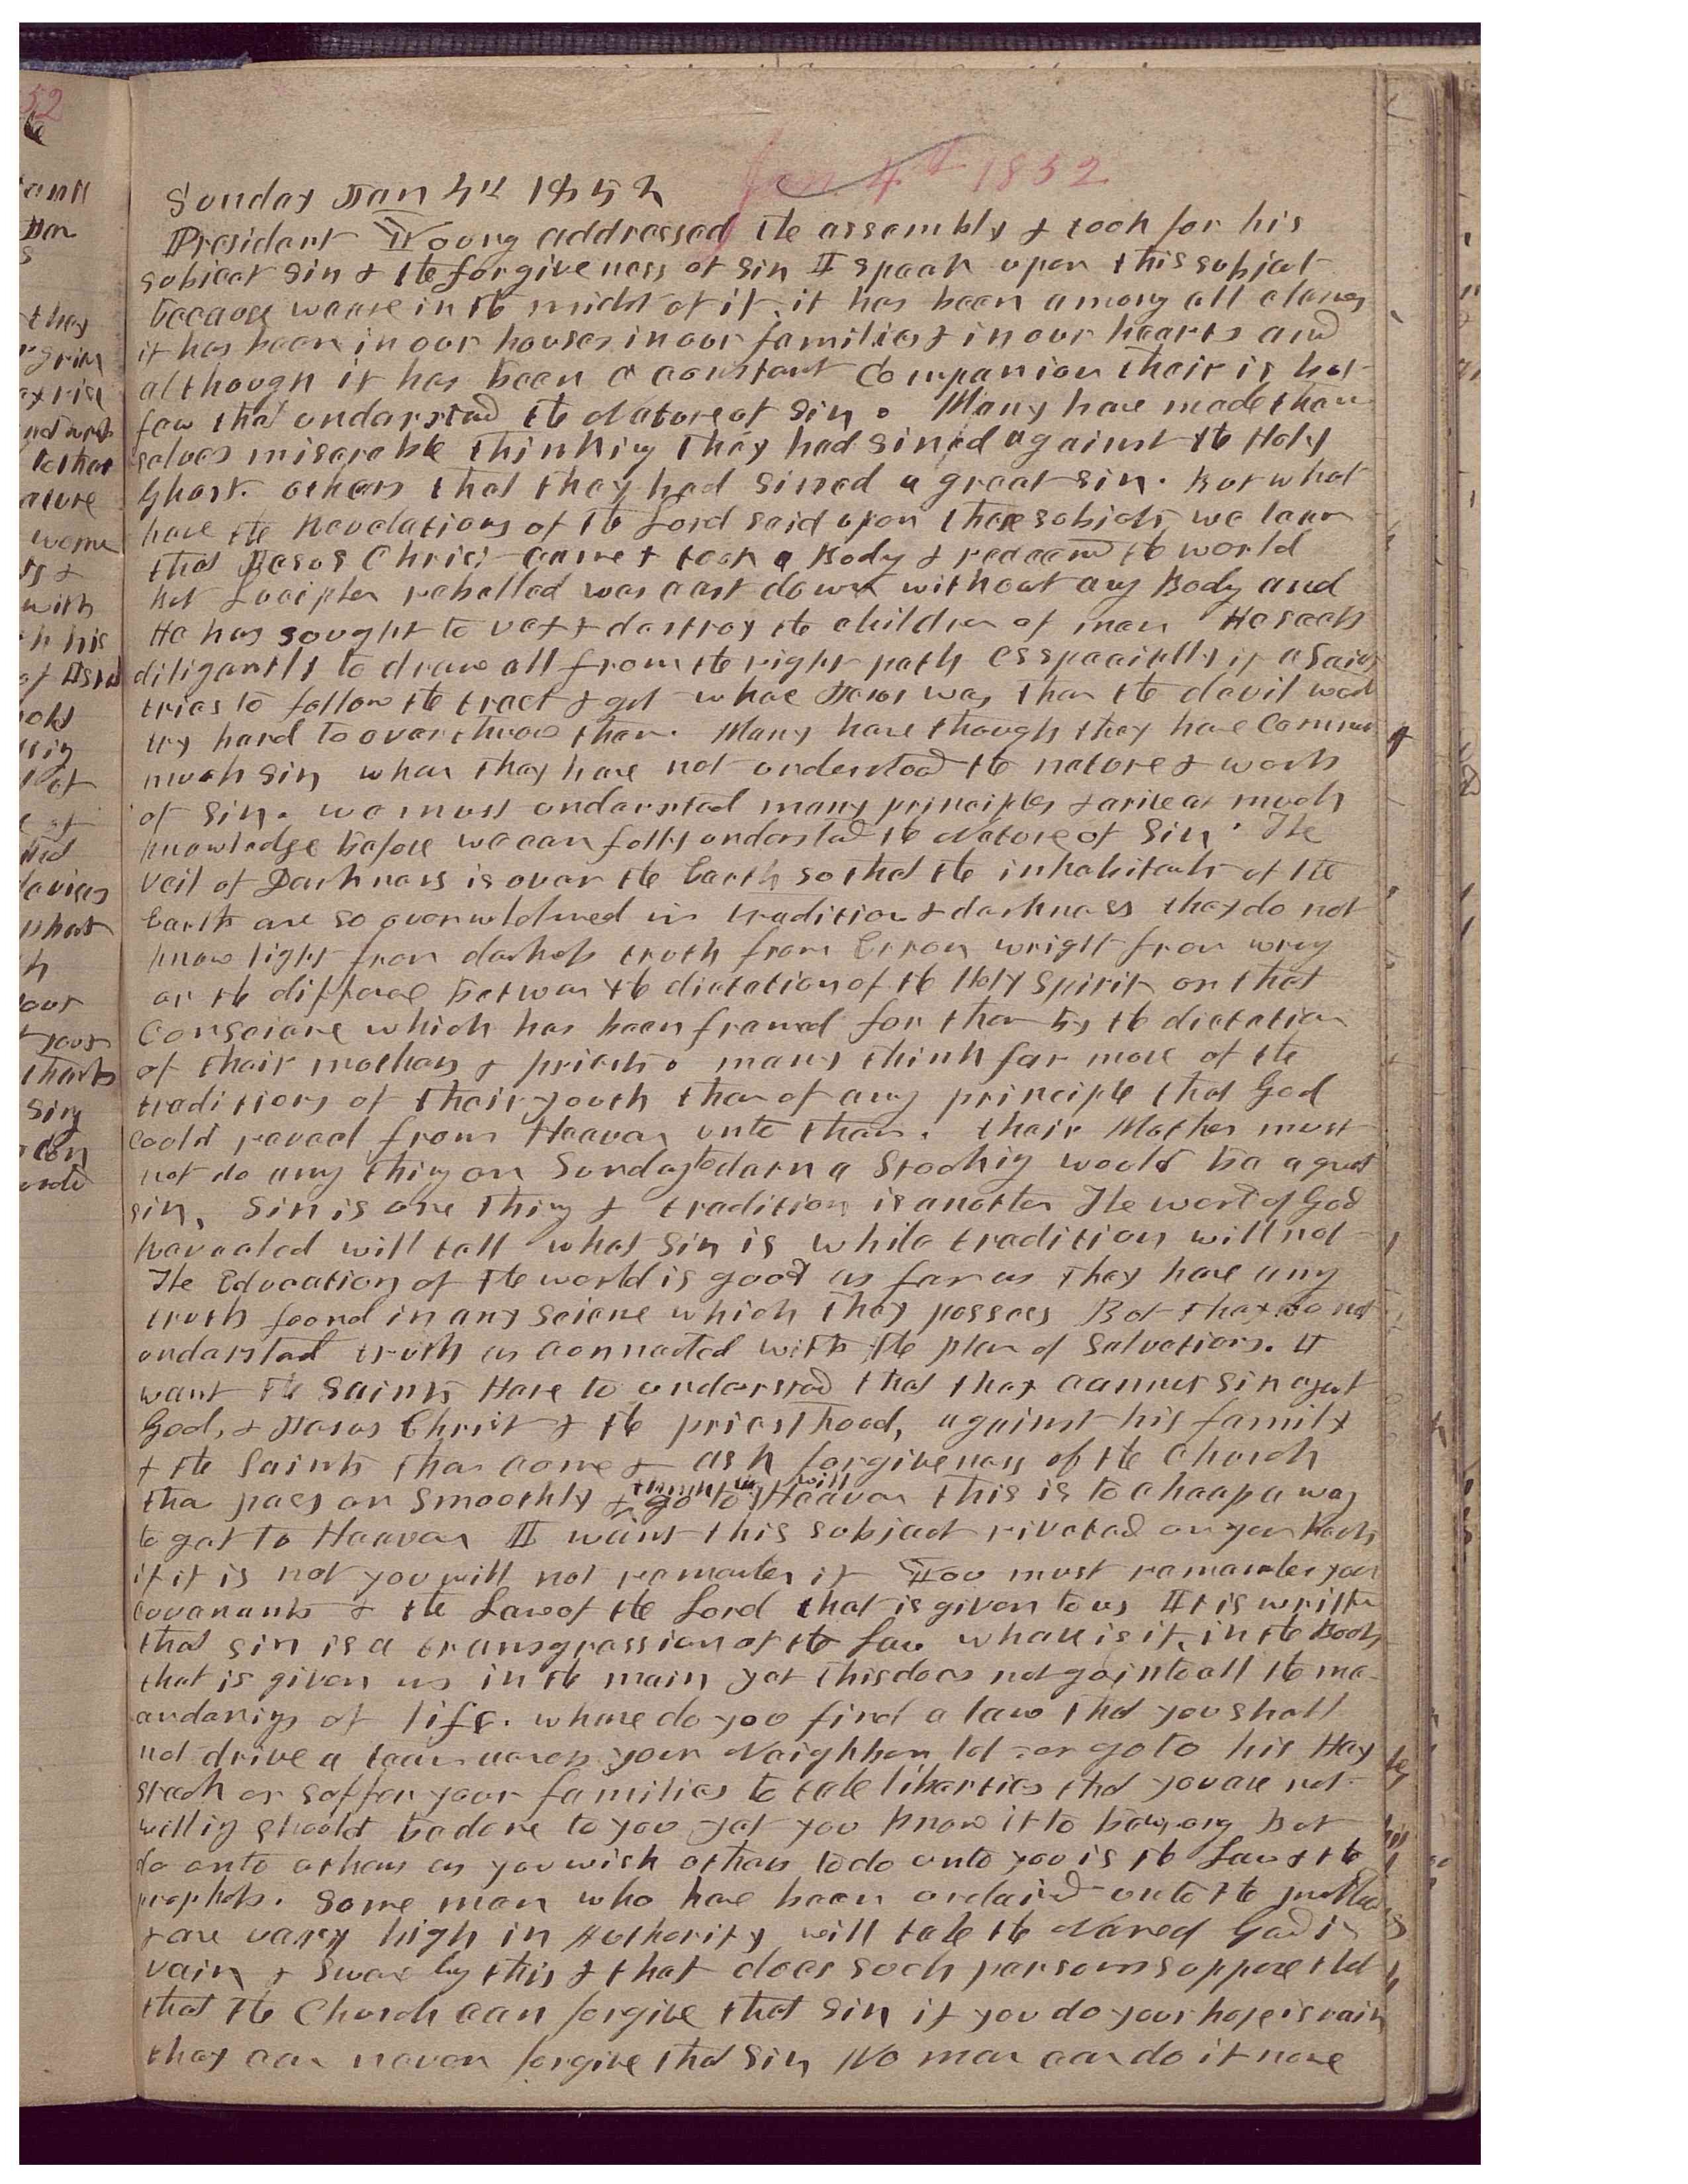 Jan. 4th 1852
Sunday Jan 4th 1852
President Young addressed the assembly & took for his
subject sin & the forgiveness of sin I speak upon this subject
because we are in the midst of it. it has been among all classes
it has been in our houses in our families & in our hearts and
although it has been a constant Companion their is but
few that understand the Nature of Sin. Many have made them
selves miserable thinking they had sined against the Holy
Ghost. others that they had sined a great sin. But what
have the Revelations of the Lord said upon these subjects we learn
that Jesus Christ came & took a Body & redeemd the world
but Lucipher rebelled was cast down without any Body and
He has sought to vex & destroy the children of men He seeks
diligently to draw all from the right path esspecially if a Saint
tries to follow the tract & get whare Jesus was then the devil will
try hard to overthrow them. Many have though they have
much Sin when they have not understood the nature & work
of Sin. we must understand many principles & arive at much
knowledge before we can fully understand the Nature of Sin. The
veil of Darkness is over the Earth so that the inhabitants of the
Earth are so overwhelmed in tradition & darkness they do not
know light from darkness truth from Error wright from wrong
or the differace between the dictation of the Holy Spirit or that
Consciance which has been framed for them by the dictation
of their mothers & priests. many think far more of the
traditions of their youth than of any principle that God
could reveal from Heaven unto them. their Mother must
not do any thing on Sunday to darn a Stocking would be a great
sin. Sin is one thing & tradition is another The word of God
revealed will tell what Sin is while tradition will not
The Education of the world is good as far as they have any
truth found in any Science which they possess But they do not
understand truth as connected with the plan of Salvation. I
want the Saints Here to understand that they cannot sin against
God, & Jesus Christ & the priesthood, against his family
& the Saints then come & ask forgiveness of the Church
then pass on smoothly & think we will go to Heaven this is to cheap a way
to get to Heaven I want this subject riveted on your hearts
if it is not you will not remember it You must remember your
covenants & the Law of the Lord that is given to us It is written
that sin is a transgression of the law whare is it, in the Books
that is given us in the main yet this does not go into all the me-
anderings of life. whare do you find a law that you shall
not drive a team across your Neighbor lot or go to his Hay
stack or suffer your families to take liberties that you are not
willing should be done to you yet you know it to be wrong But
do unto others as you wish others to do unto you is the Law & the
prophets. Some men who have been ordaind unto the
& are varry high in Authority will take the Name of God in
vain & swear by this & that does such persons suppose that
that the Church can forgive that Sin if you do your hope is vain
they can never forgive that Sin No man can do it none